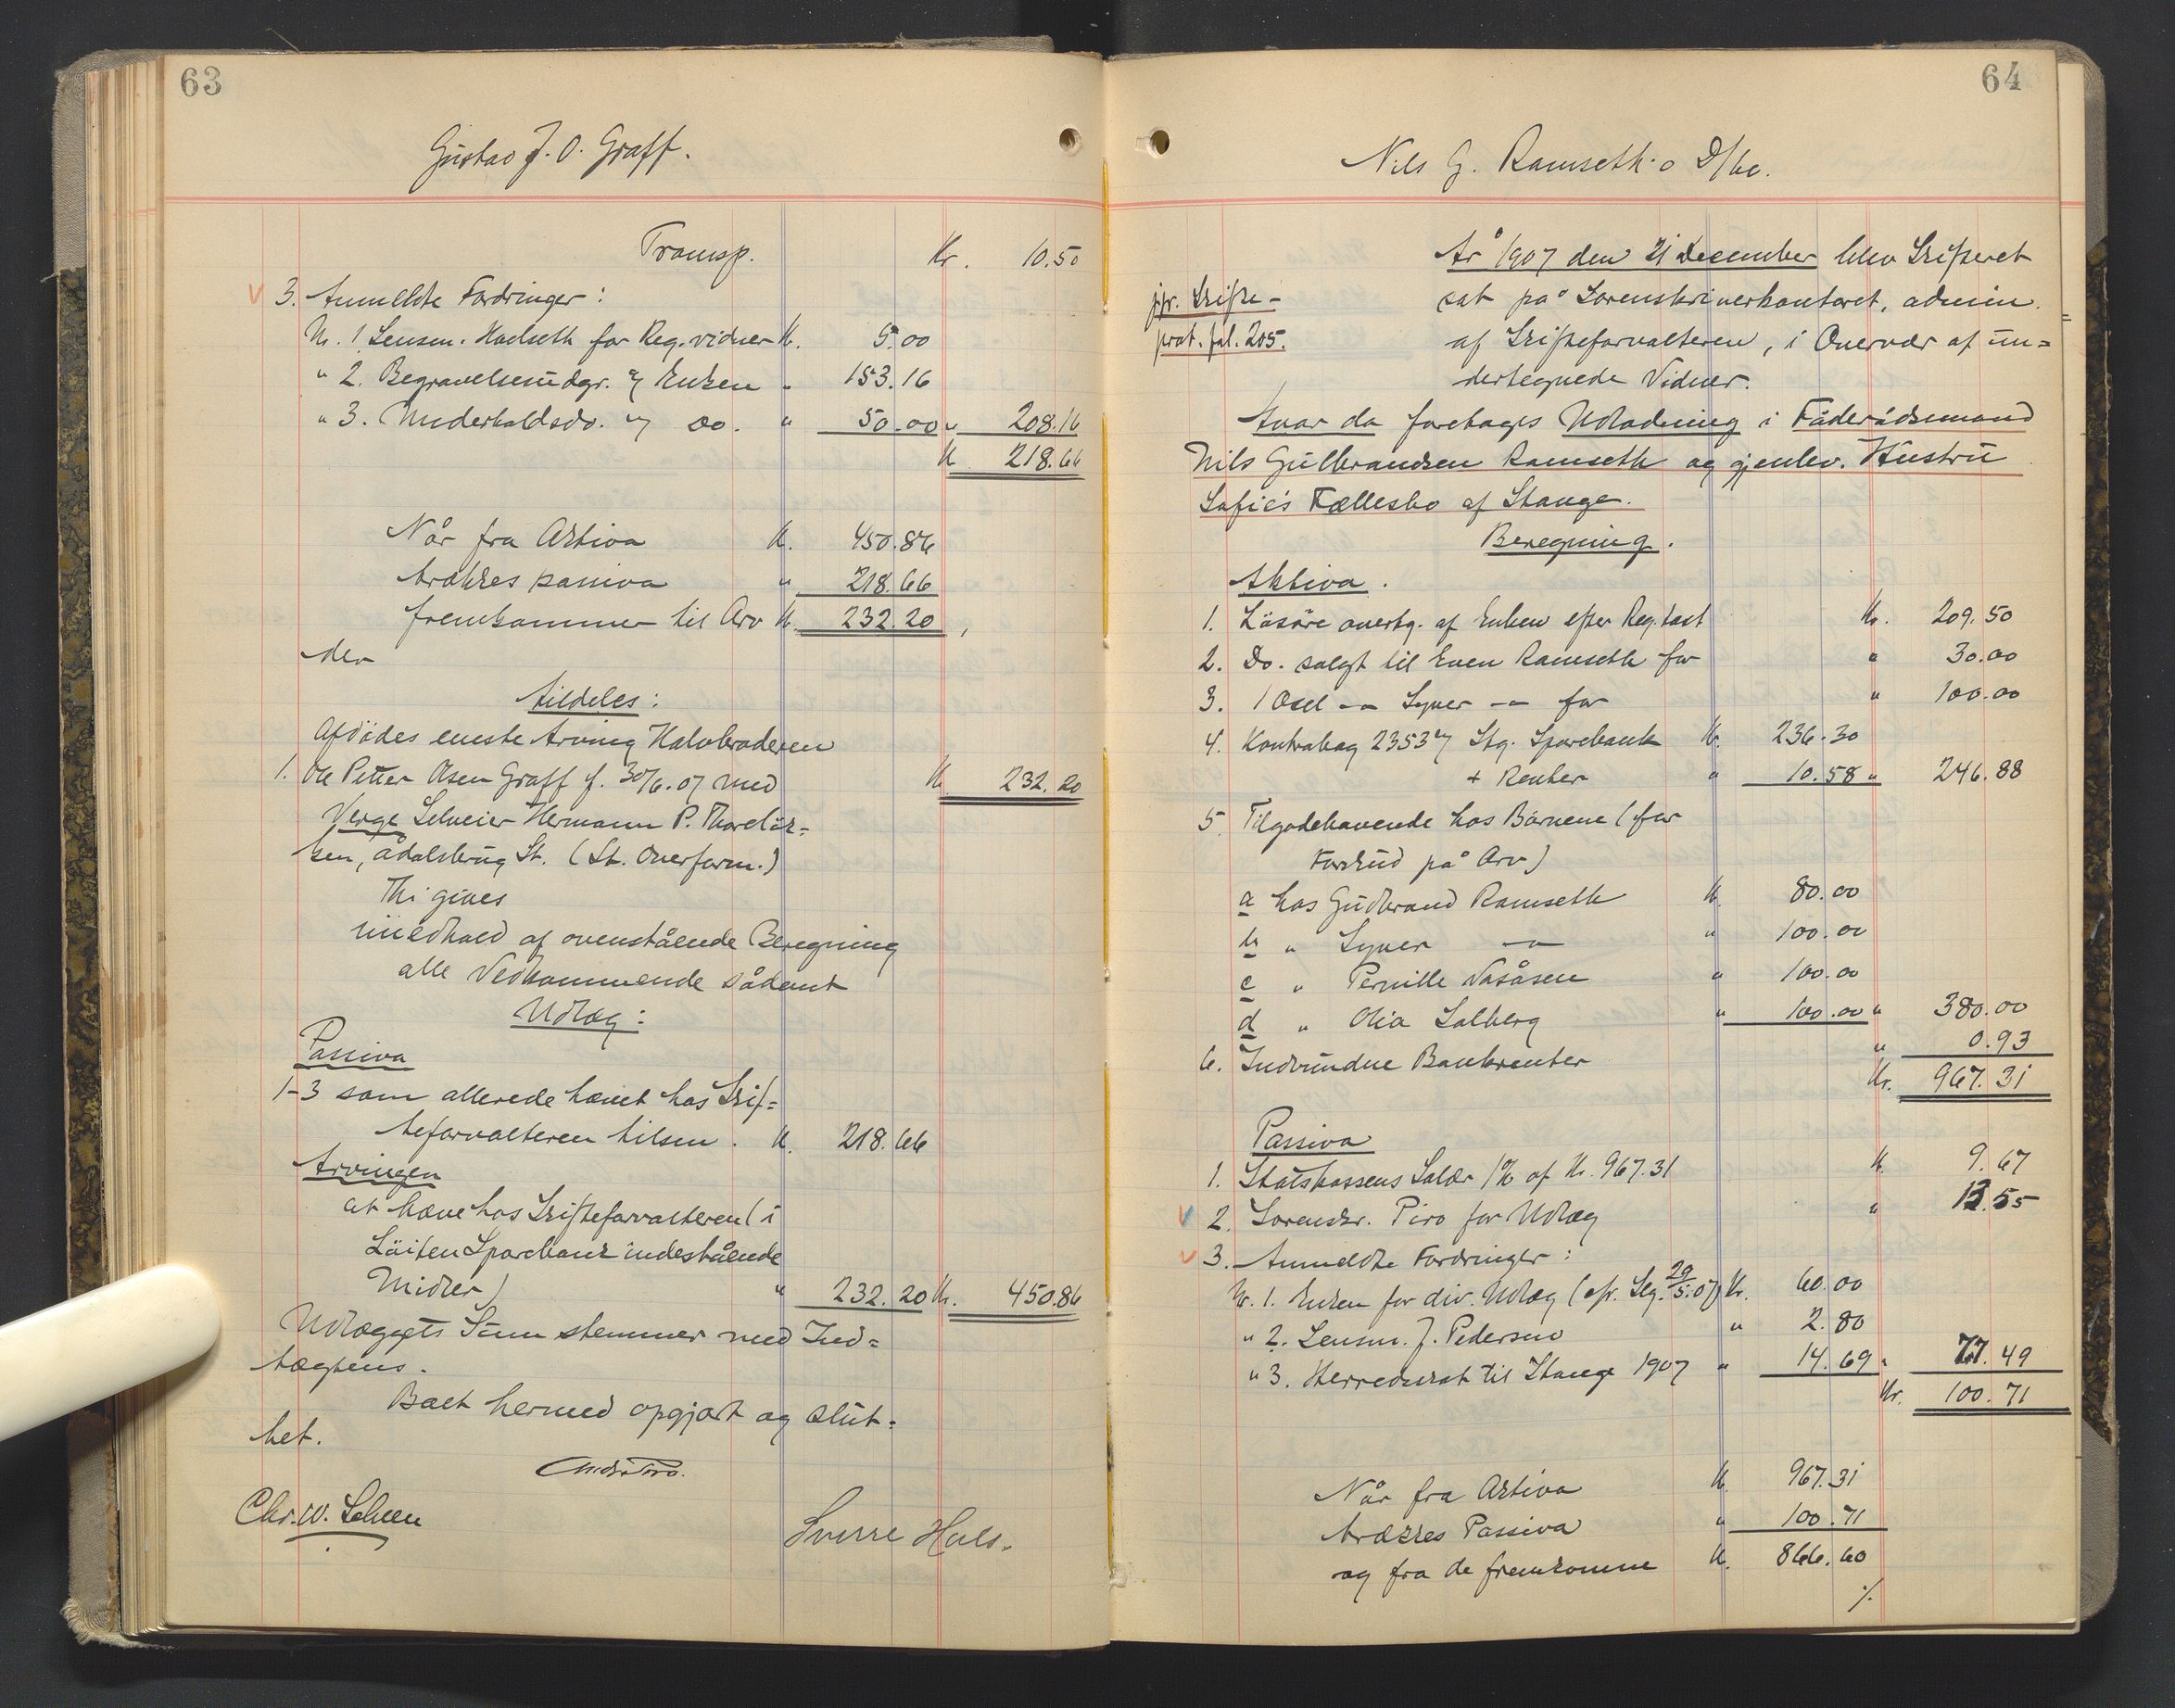 63
Gustav J. O. Graff.
Transp. Kr. 10.50
3. Anmeldte Fordringer:
Nr. 1 Lensm. Hoelseth for Reg.vidner K. 5.00
" 2. Begravelsesudgr. Enken " 153.16
" 3. Underholdsdo. Do. " 50.00 " 208.16
K 218.66
Når fra Aktiva K. 450.86
trækkes passiva " 218.66
fremkommer til Arv K. 232.20,
der
tildeles:
Afdødes eneste Arving Halvbroderen
1. Ole Petter Olsen Graff f. 30/6.07 med K 232.20
Verge Selveier Hermann P. Thorclüs=
sen, Ådalsbrug St. (St. Overform.)
Thi gives
i medhold af ovenstående Beregning
alle Vedkommende sådant
Udlæg:
Passiva
1-3 som allerede hævet hos Skif=
teforvalteren tilsm. K. 218.66
Arvingen
at hæve hos Skifteforvalteren (i
Löiten Sparebank indestående
Midler) " 232.20 Kr. 450.86
Udlæggets Sum stemmer med Ind=
tægtens.
Boet hermed opgjort og slut=
tet.
Chr. W. Scheen
Sverre Hals.
64
Nils G. Ramseth's D/bo.
År 1907 den 21 December blev Skifteret
jfr. Skifte-
prot. fol. 205.
sat på Sorenskriverkontoret, admin.
af Skifteforvalteren, i Overvær af un=
dertegnede Vidner.
Hvor da foretages Udlodning i Föderådsmand
Nils Gulbrandsen Ramseth og gjenlev. Hustru
Sofie's Fællesbo af Stange.
Beregning.
Aktiva.
1. Lösöre overtg. af Enken efter Reg.taxt Kr. 209.50
2. Do. solgt til Even Ramseth for " 30.00
3. 1 Oxel - " - Syver - " - for " 100.00
4. Kontrabog 2353 Stg. Sparebank Kr. 236.30
+ Renter " 10.58 " 246.88
5. Tilgodehavende hos Børnene (for
Forskud på Arv)
a hos Gudbrand Ramseth K. 80.00
b " Syver - " - " 100.00
c " Pernille Vasåsen " 100.00
d " Olia Solberg " 100.00 " 380.00
6. Indvundne Bankrenter " 0.93
Kr. 967.31
Passiva
1. Statskassens Salær 1% af Kr. 967.31 K. 9.67
2. Sorenskr. Piro for Udlæg " 13.55
3. Anmeldte Fordringer:
Nr. 1. Enken for div. Udlæg (efr. Skg. 29/5.07) Kr. 60.00
" 2. Lensm. J. Pedersen " 2.80
" 3. Herredsskat til Stange 1907 " 14.69 " 77.49
Kr. 100.71
Når fra Aktiva K 967.31
trækkes Passiva " 100.71
og fra de fremkomne K. 866.60
./.